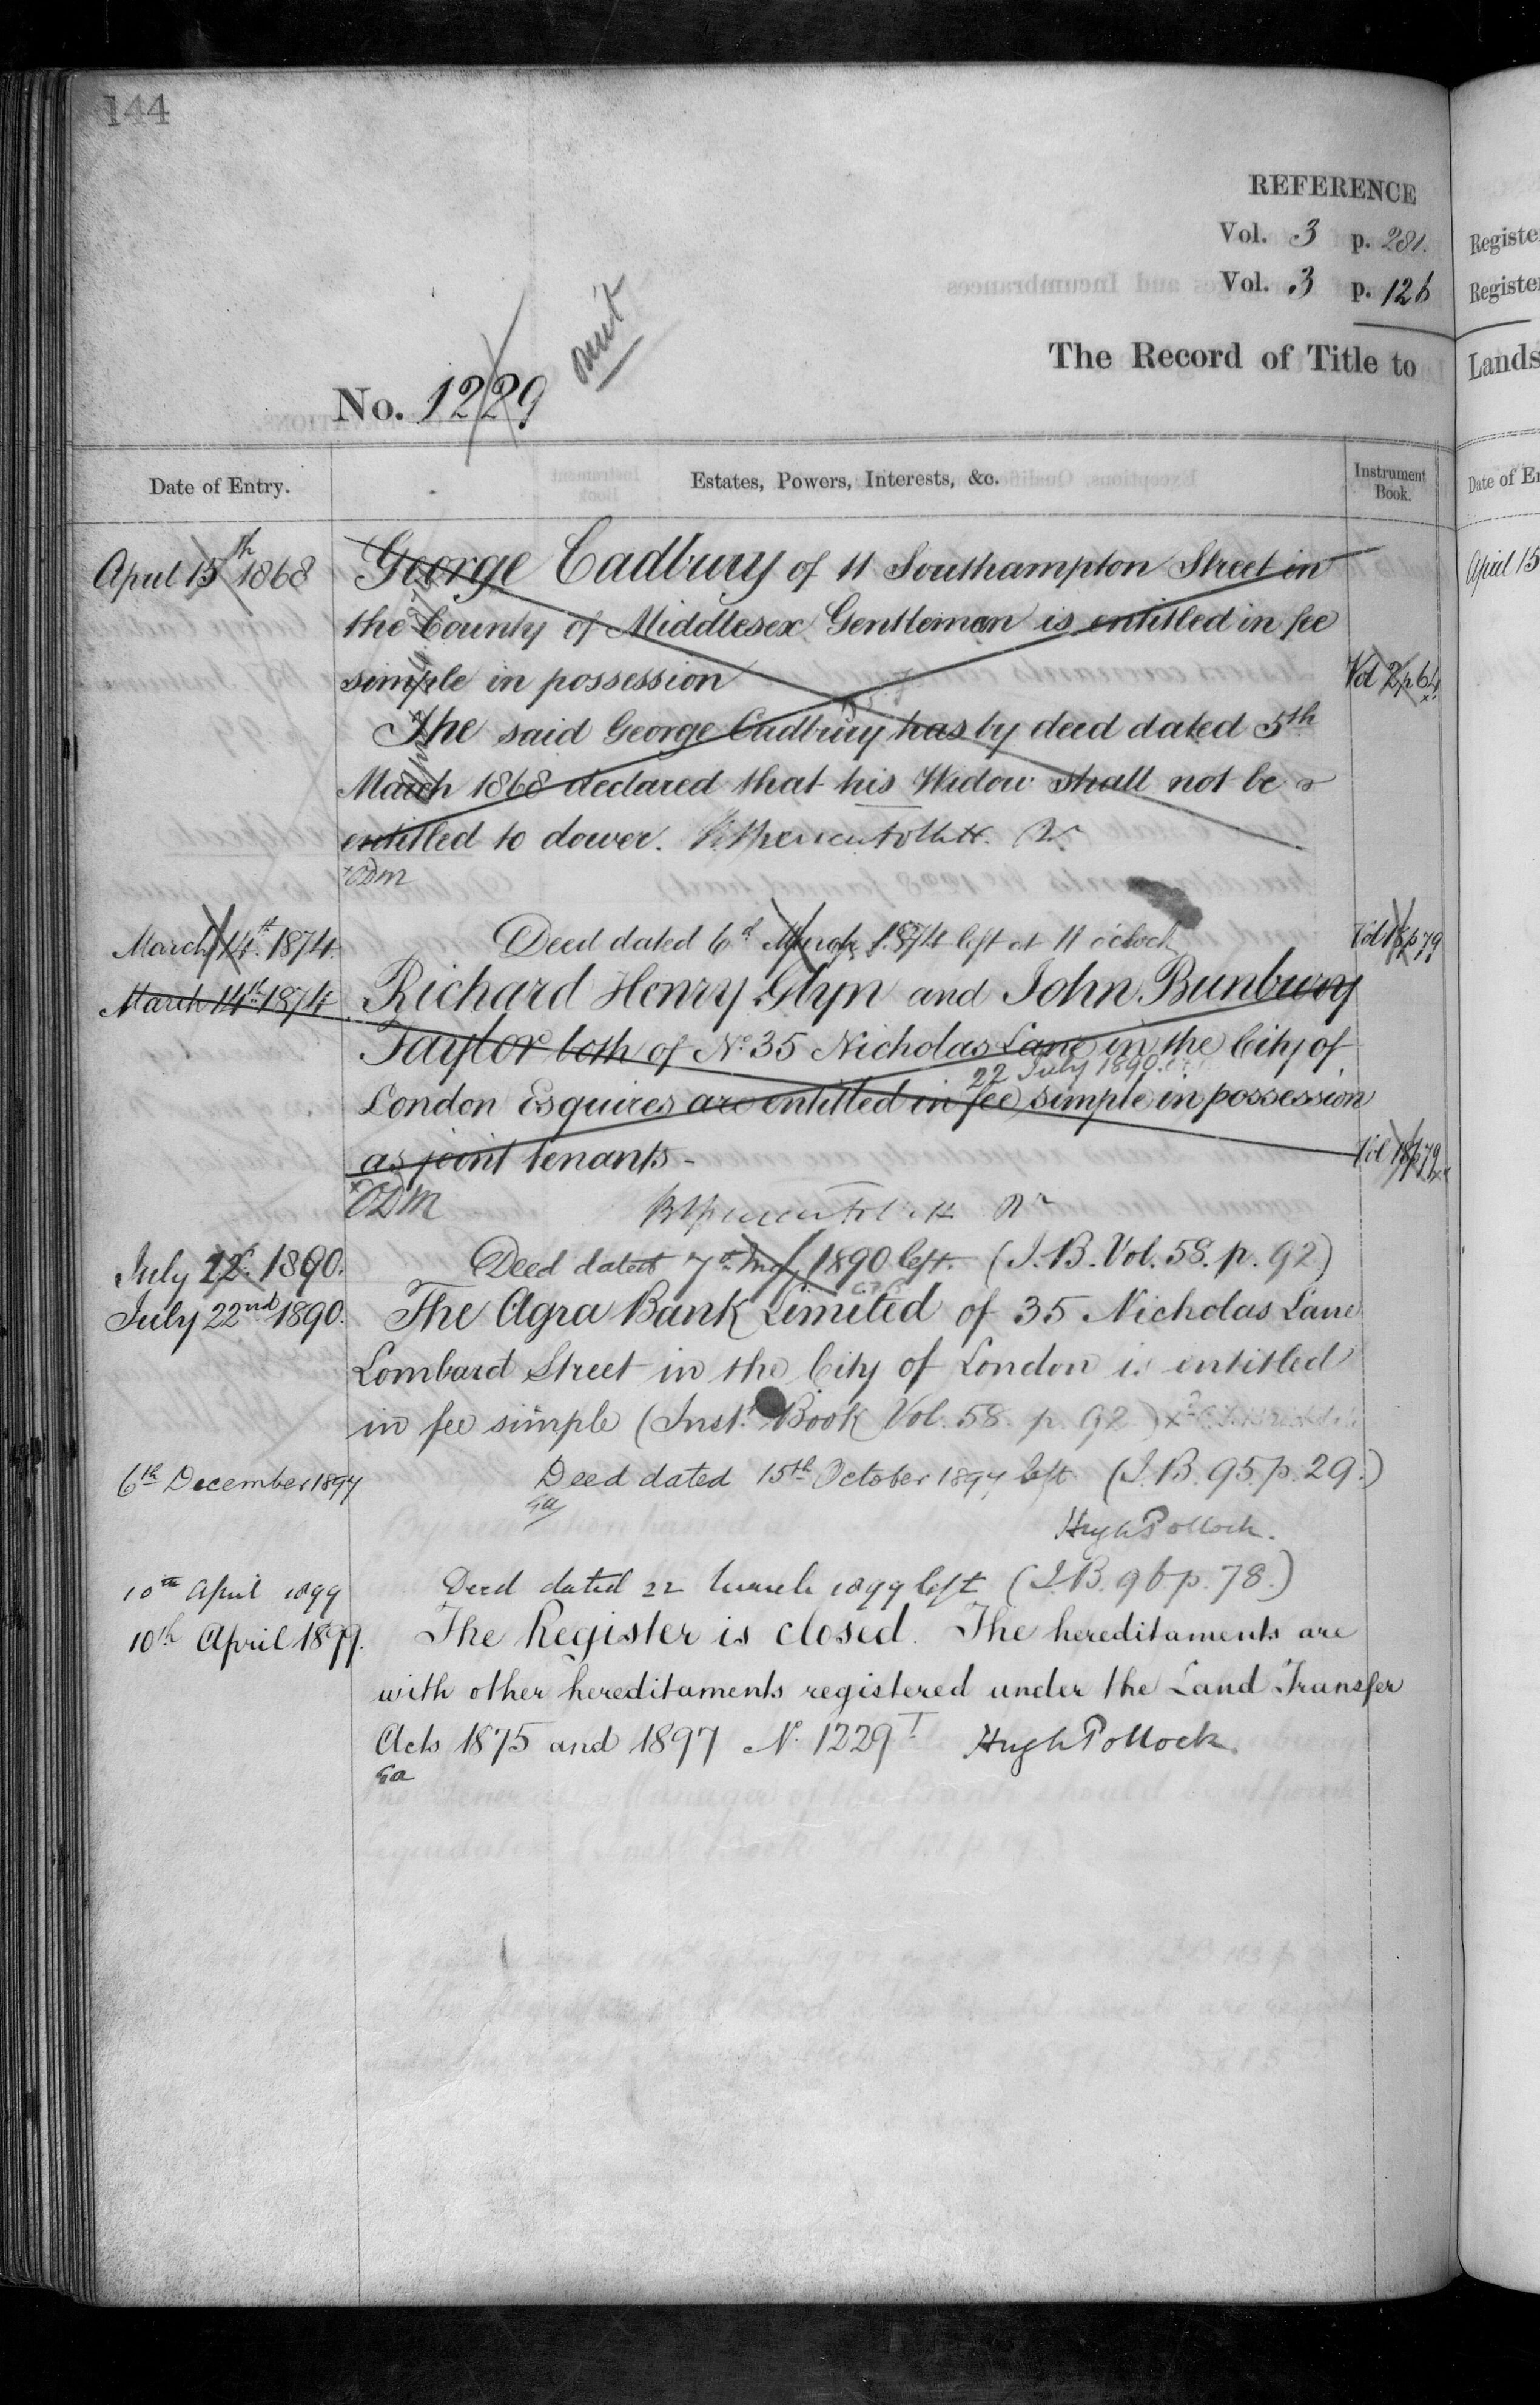 144
REFERENCE
Vol. 3 p. 281.
Vol. 3 p. 126
The Record of Title to
No. 1229 omit
Date of Entry.
Estates, Powers, Interests, &c.
Instrument Book.
April 15th 1868
George Cadbury of 11 Southampton Street in
the County of Middlesex Gentleman is entitled in fee
simple in possession
Vol 2 p 64
The said George Cadbury has by deed dated 5th
March 1868 declared that his Widow shall not be
entitled to dower.
ODM
March 14th 1874. Deed dated 6th March 1874 left at 11 o'clock Vol 18 p 79
March 14th 1874 Richard Henry Glyn and John Bunbury
Taylor both of No. 35 Nicholas Lane in the City of
22 July 1890.
London Esquires are entitled in fee simple in possession
as joint tenants - Vol 18 p 79
ODM
July 1890. Deed dated 7th 1890 left. (I.B. Vol. 58. p. 92)
July 22nd 1890. The Agra Bank Limited of 35 Nicholas Lane
Lombard Street in the City of London is entitled
in fee simple (Inst. Book Vol. 58. p. 92)
6th December 1897 Deed dated 15th October 1897 left (I.B. 95. p. 29.)
Ga
Hugh Pollock.
10th April 1899 Deed dated 22 March 1899 left (I.B. 96 p. 78.)
10th April 1899. The Register is closed. The hereditaments are
with other hereditaments registered under the Land Transfer
Acts 1875 and 1897 No. 1229 T Hugh Pollock.
Ga
Registe
Registe
Lands
Date of En
April 15